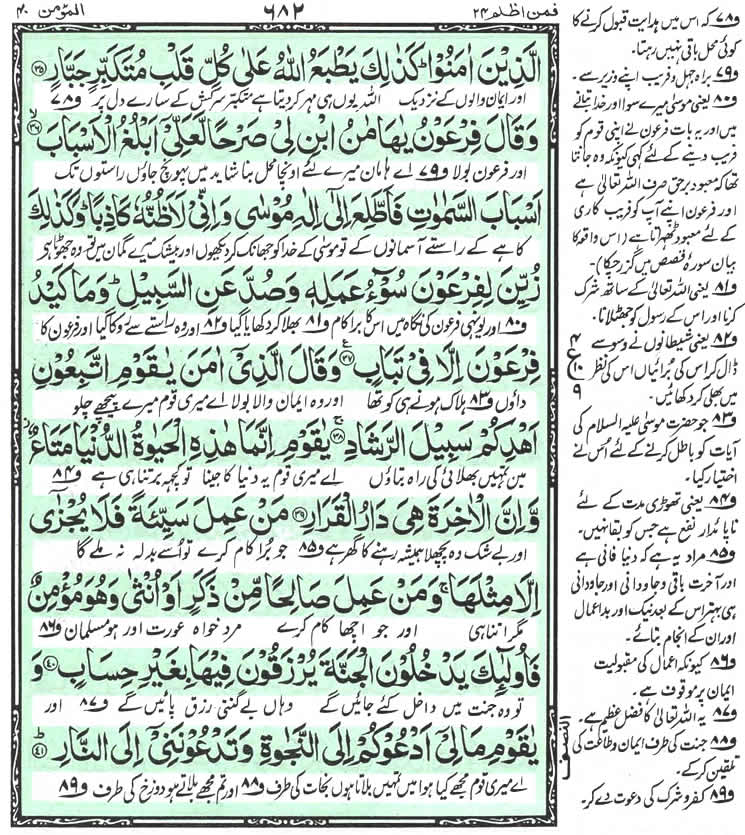 المؤمن ۴۰
۶۸۲
فمن اظلم ۲۴
الَّذِیْنَ اٰمَنُوْا ؕ كَذٰلِكَ یَطْبَعُ اللّٰهُ عَلٰی كُلِّ قَلْبِ مُتَكَبِّرٍ جَبَّارٍ ﴿۳۵﴾
اور ایمان والوں کے نزدیک اللہ یوں ہی مہر کردیتا ہے متکبر سرکش کے سارے دل پر ف۷۸
وَ قَالَ فِرْعَوْنُ یٰهَامٰنُ ابْنِ لِیْ صَرْحًا لَّعَلِّیْۤ اَبْلُغُ الْاَسْبَابَ ﴿۳۶﴾
اور فرعون بولا ف۷۹ اے ہامان میرے لئے اونچا محل بنا شاید میں پہونچ جاؤں راستوں تک
اَسْبَابَ السَّمٰوٰتِ فَاَطَّلِعَ اِلٰۤی اِلٰهِ مُوْسٰی وَ اِنِّیْ لَاَظُنُّهٗ كَاذِبًا ؕ وَ كَذٰلِكَ
کاہے کے راستے آسمانوں کے تو موسیٰ کے خدا کو جھانک کر دیکھوں اور بیشک میرے گمان میں تو وہ جھوٹا ہی
زُیِّنَ لِفِرْعَوْنَ سُوْٓءُ عَمَلِهٖ وَ صُدَّ عَنِ السَّبِیْلِ ؕ وَ مَا كَیْدُ
ف۸۰ اور یونہی فرعون کی نگاہ میں اس کا برا کام ف۸۱ بھلا کر دکھایا گیا ف۸۲ اور وہ راستے سے روکا گیا اور فرعون کا
فِرْعَوْنَ اِلَّا فِیْ تَبَابٍ ﴿۳۷﴾ وَ قَالَ الَّذِیْۤ اٰمَنَ یٰقَوْمِ اتَّبِعُوْنِ
داؤں ف۸۳ ہلاک ہونے ہی کو تھا اور وہ ایمان والا بولا اے میری قوم میرے پیچھے چلو
اَهْدِكُمْ سَبِیْلَ الرَّشَادِ ﴿۳۸﴾ یٰقَوْمِ اِنَّمَا هٰذِهِ الْحَیٰوةُ الدُّنْیَا مَتَاعٌ
میں تمہیں بھلائی کی راہ بتاؤں اے میری قوم یہ دنیا کا جینا تو کچھ برتنا ہی ہے ف۸۴
وَّ اِنَّ الْاٰخِرَةَ هِیَ دَارُ الْقَرَارِ ﴿۳۹﴾ مَنْ عَمِلَ سَیِّئَةً فَلَا یُجْزٰۤی
اور بے شک وہ پچھلا ہمیشہ رہنے کا گھر ہے ف۸۵ جو برا کام کرے تو اسے بدلہ نہ ملے گا
اِلَّا مِثْلَهَا ۚ وَ مَنْ عَمِلَ صَالِحًا مِّنْ ذَكَرٍ اَوْ اُنْثٰی وَ هُوَ مُؤْمِنٌ
مگر اتنا ہی اور جو اچھا کام کرے مرد خواہ عورت اور ہو مسلمان ف۸۶
فَاُولٰٓىِٕكَ یَدْخُلُوْنَ الْجَنَّةَ یُرْزَقُوْنَ فِیْهَا بِغَیْرِ حِسَابٍ ﴿۴۰﴾ وَ
تو وہ جنت میں داخل کئے جائیں گے وہاں بے گنتی رزق پائیں گے ف۸۷ اور
یٰقَوْمِ مَا لِیْۤ اَدْعُوْكُمْ اِلَی النَّجٰوةِ وَ تَدْعُوْنَنِیْۤ اِلَی النَّارِ ﴿۴۱﴾
اے میری قوم مجھے کیا ہوا میں تمہیں بلاتا ہوں نجات کی طرف ف۸۸ اور تم مجھے بلاتے ہو دوزخ کی طرف ف۸۹
ف۷۸ کہ اس میں ہدایت قبول کرنے کا
کوئی محل باقی نہیں رہتا۔
ف۷۹ براہ جہل و فریب اپنے وزیر سے۔
ف۸۰ یعنی موسیٰ میرے سوا اور خدا بتانے
میں اور یہ بات فرعون نے اپنی قوم کو
فریب دینے کے لئے کہی کیونکہ وہ جانتا
تھا کہ معبود برحق صرف اللہ تعالیٰ ہے
اور فرعون اپنے آپ کو فریب کاری
کے لئے معبود ٹھہراتا ہے (اس واقعہ کا
بیان سورۂ قصص میں گزر چکا)۔
ف۸۱ یعنی اللہ تعالیٰ کے ساتھ شرک
کرنا اور اس کے رسول کو جھٹلانا۔
ف۸۲ یعنی شیطانوں نے وسوسے
ڈال کر اس کی برائیاں اس کی نظر
میں بھلی کر دکھائیں۔
ف۸۳ جو حضرت موسیٰ علیہ السلام کی
آیات کو باطل کرنے کے لئے اس نے
اختیار کیا۔
ف۸۴ یعنی تھوڑی مدت کے لئے
ناپائدار نفع ہے جس کو بقا نہیں۔
ف۸۵ مراد یہ ہے کہ دنیا فانی ہے
اور آخرت باقی و جاودانی اور جاودانی
ہی بہتر اس کے بعد نیک اور بد اعمال
اور ان کے انجام بتائے۔
ف۸۶ کیونکہ اعمال کی مقبولیت
ایمان پر موقوف ہے۔
ف۸۷ یہ اللہ تعالیٰ کا فضل عظیم ہے۔
ف۸۸ جنت کی طرف ایمان و طاعت کی
تلقین کرکے۔
ف۸۹ کفر و شرک کی دعوت دے کر۔
۴
ع
۱۰
۹
النصف